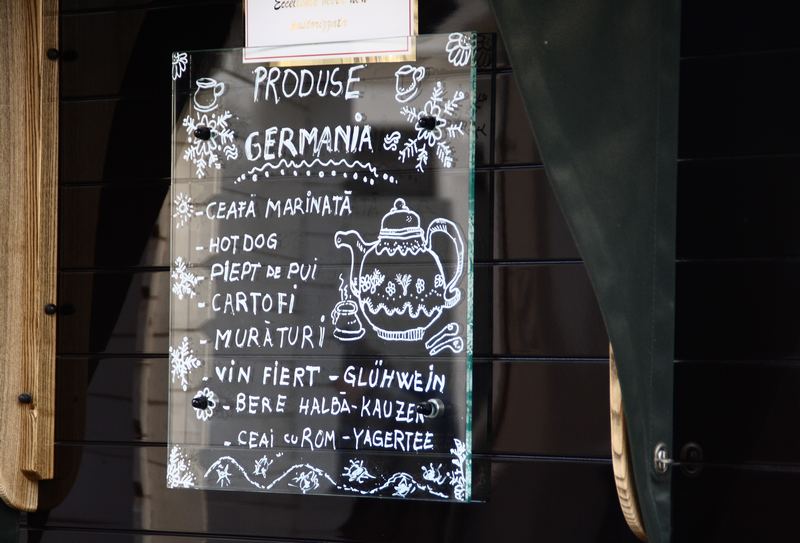 PRODUSE
GERMANIA
-CEAFĂ MARINATĂ
- HOTDOG
- PIEPT DE PUI
- CARTOFI
- MURĂTURI
- VIN FIERT - GLÜHWEIN
- BERE HALBĂ-KAUZER
- CEAI CU ROM - YAGERTEE